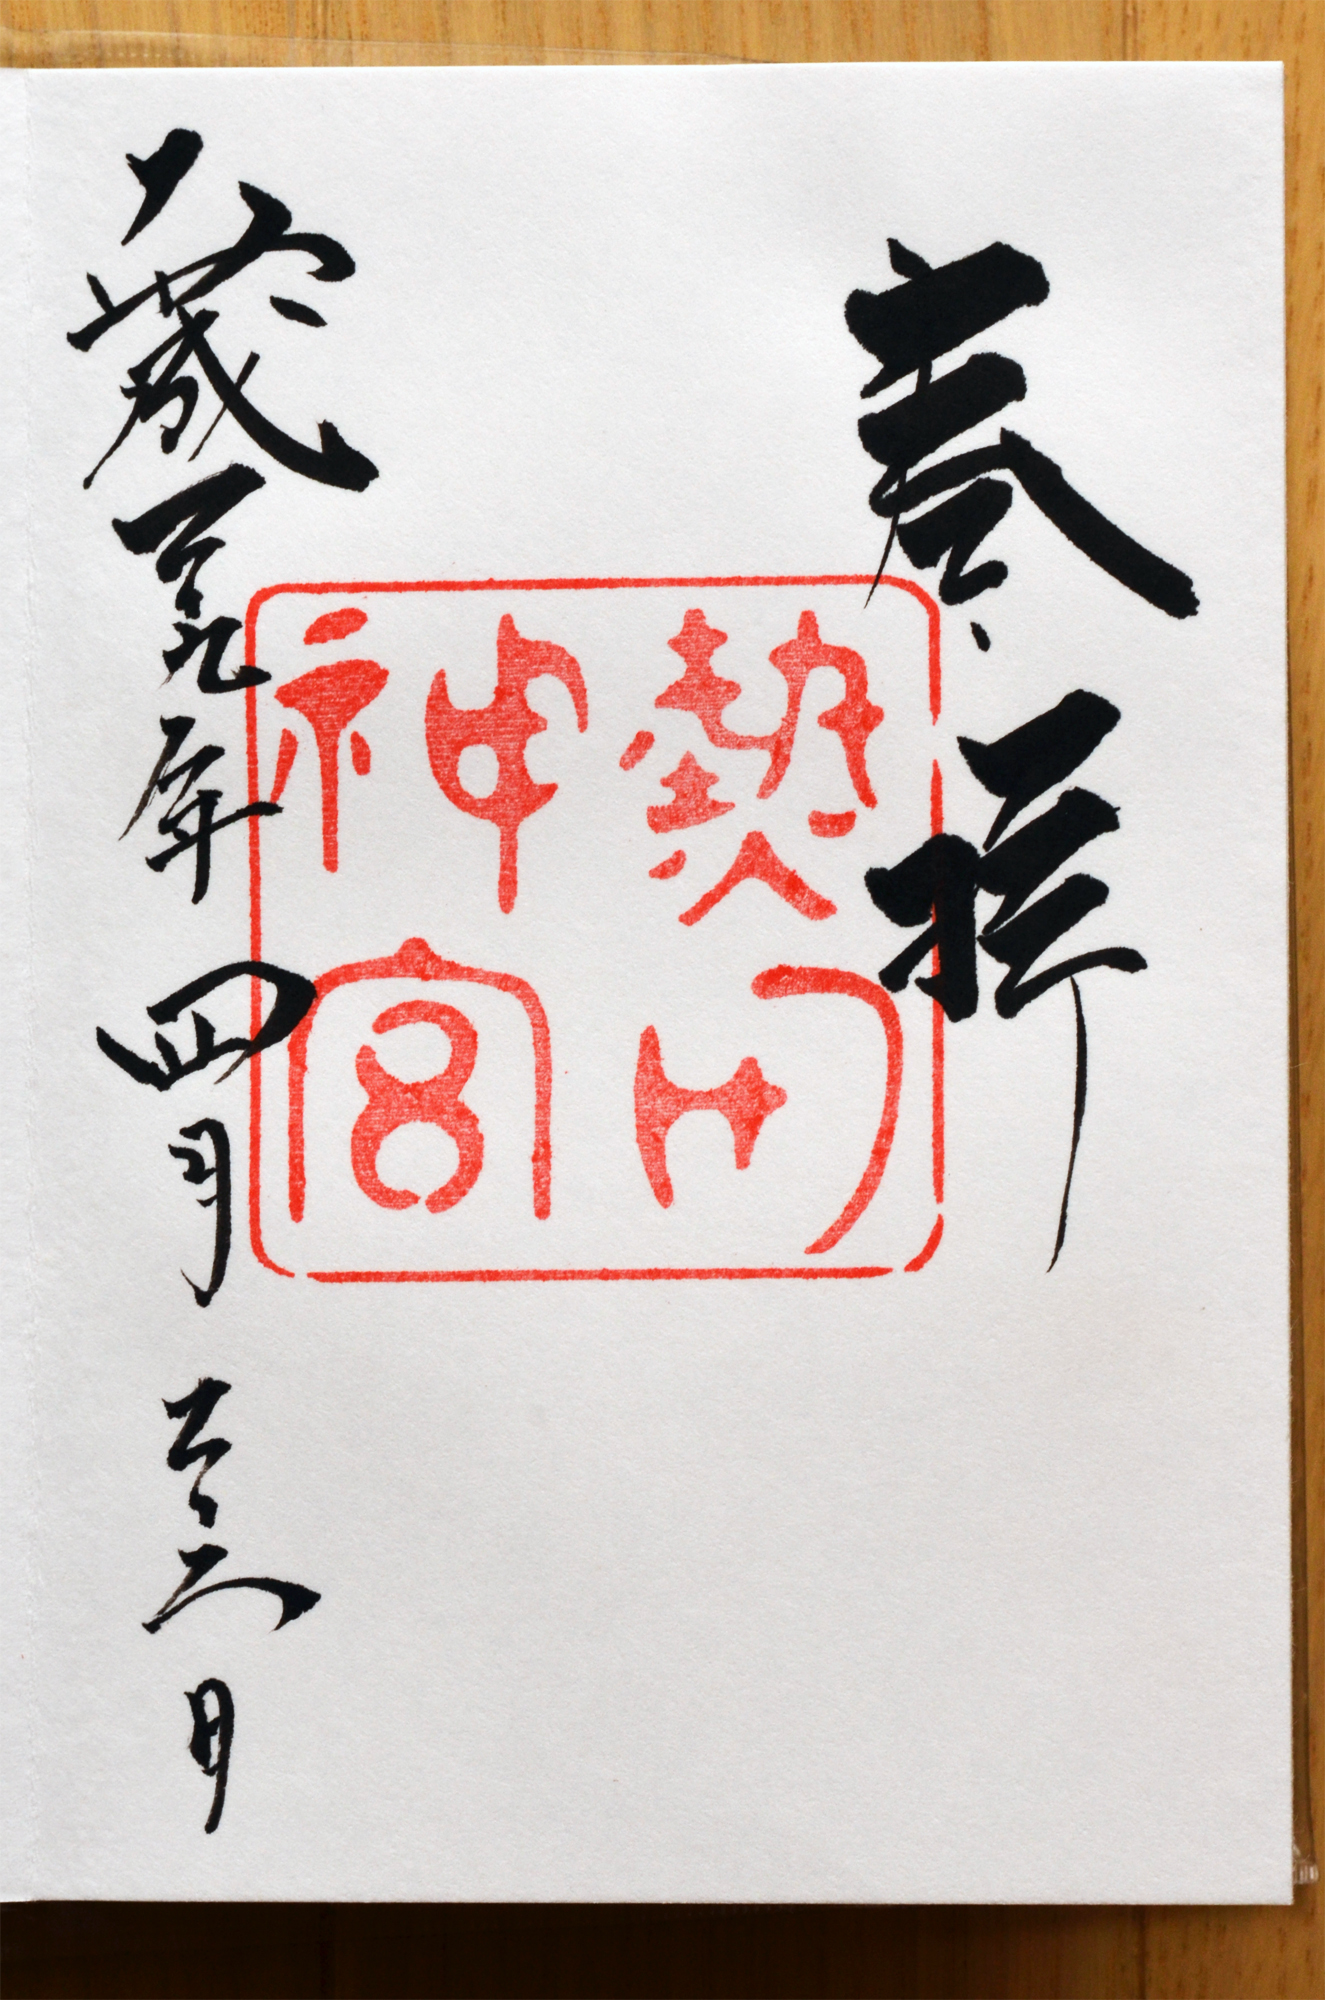 奉拝
熱田
神宮
平成二十九年四月二十二日